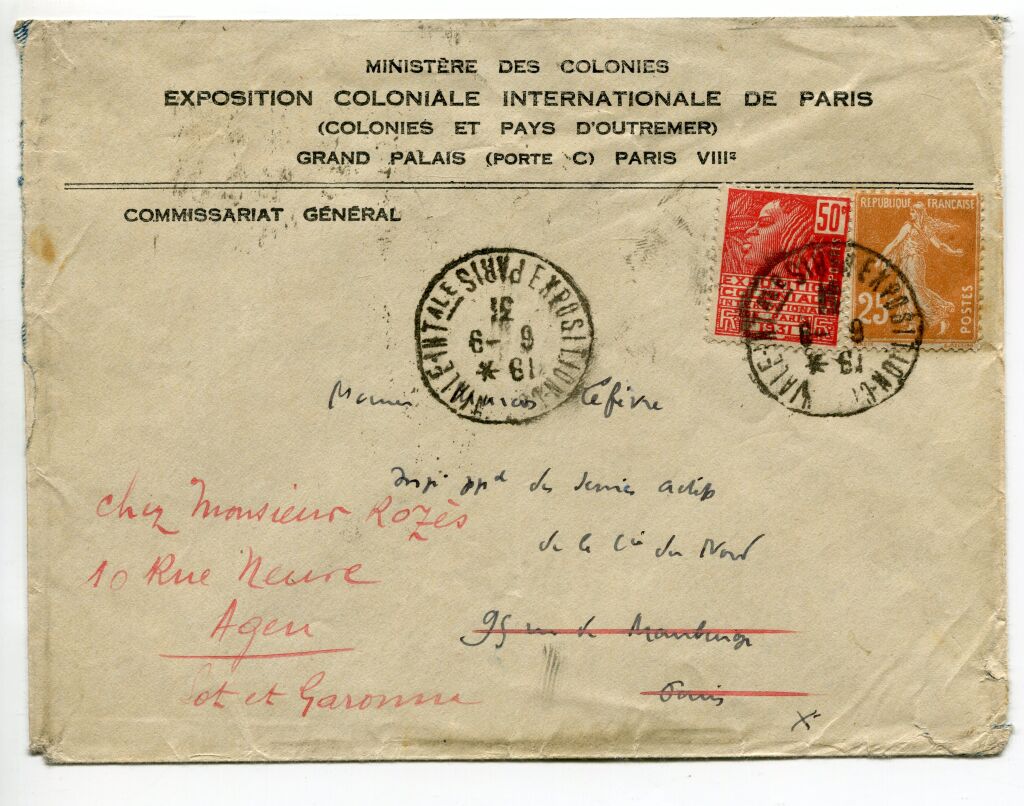 MINISTÈRE DES COLONIES
EXPOSITION COLONIALE INTERNATIONALE DE PARIS
(COLONIES ET PAYS D'OUTREMER)
GRAND PALAIS (PORTE C) PARIS VIIIe
COMMISSARIAT GÉNÉRAL
50c
POSTES
EXPOSITION
COLONIALE
INTERNATIONALE
PARIS
1931
REPUBLIQUE FRANÇAISE
25c
POSTES
PARIS EXPOSITION
INTALE
19 *
6 - 9
31
PARIS EXPOSITION
19 *
6 - 9
Lefèvre
des services actifs
de la Cie du Nord
95 rue de Maubeuge
Paris
chez Monsieur Rozès
10 Rue Neuve
Agen
Lot et Garonne